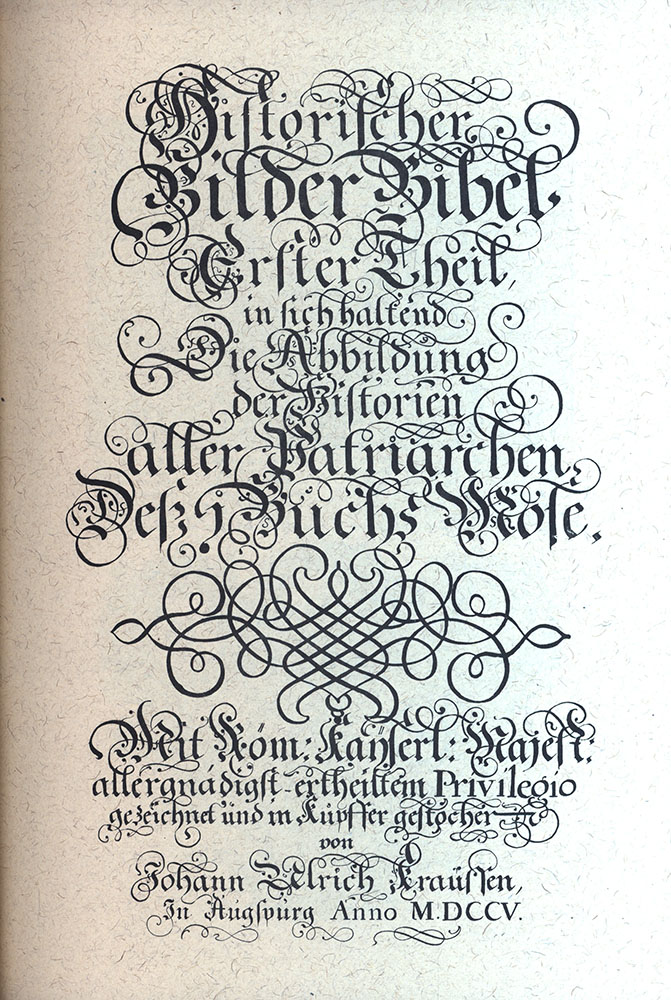 Historischer
Bilder Bibel.
Erster Theil,
in sich haltend
Die Abbildung
der Historien
aller Patriarchen.
Deß 1 Buchs Mose.
Mit Röm: Kayserl: Majest:
allergnädigst-ertheiltem Privilegio
gezeichnet und in Kupffer gestochen
von
Johann Ulrich Kraussen,
In Augspurg Anno M.DCCV.